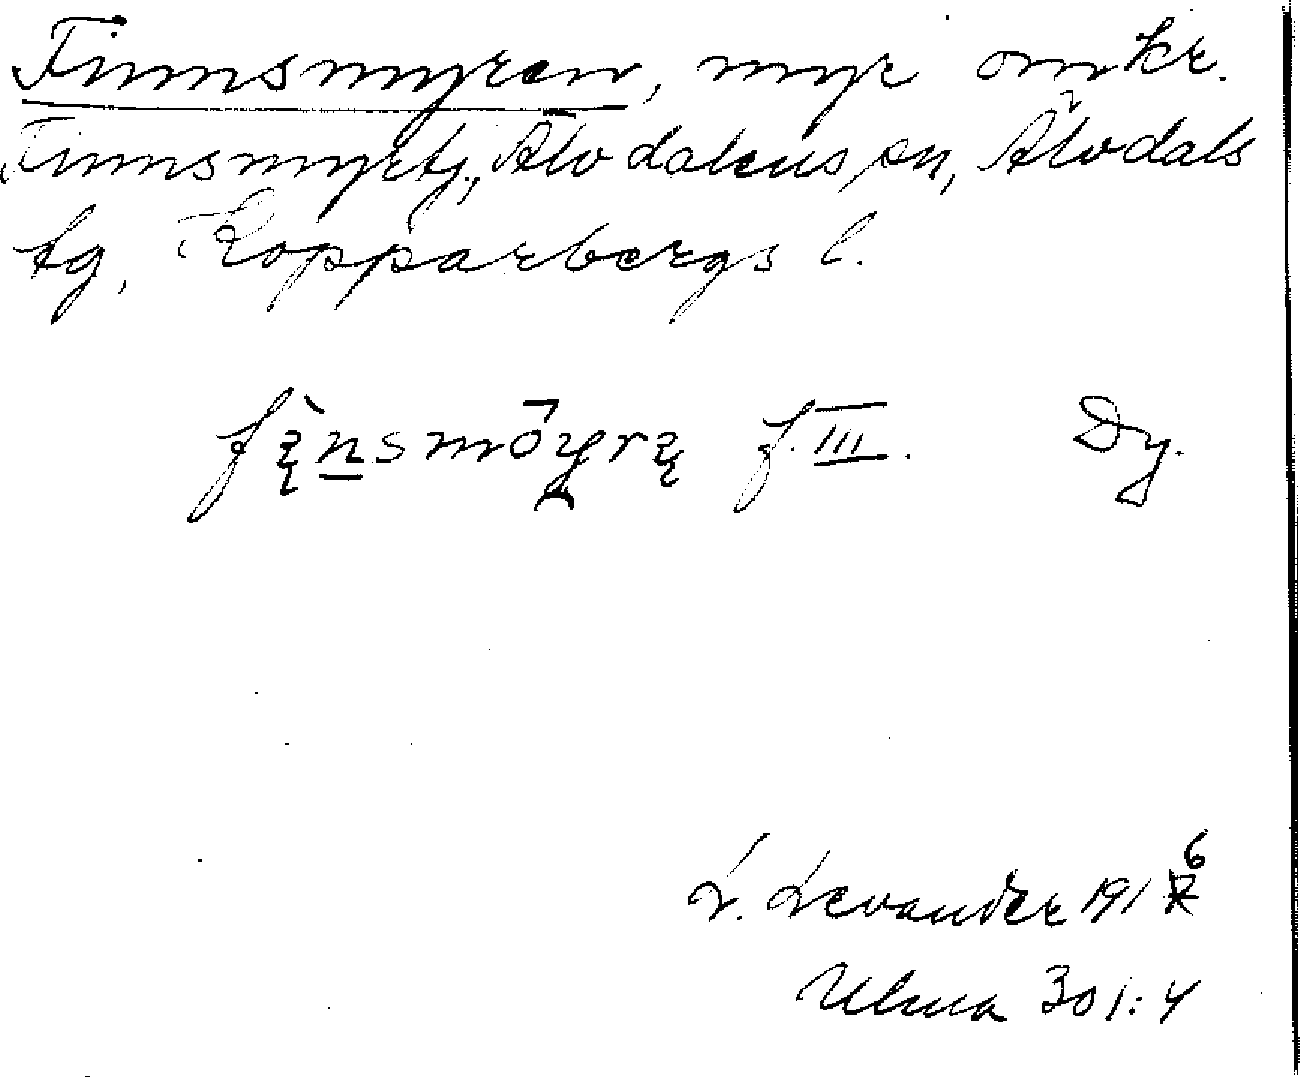 Finnsmyren, myr omkr.
Finnsmyrtj., Älvdalens sn, Älvdals
tg, Kopparbergs l.
f. III. Dy.
L. Levander 1916
Ulma 301:4